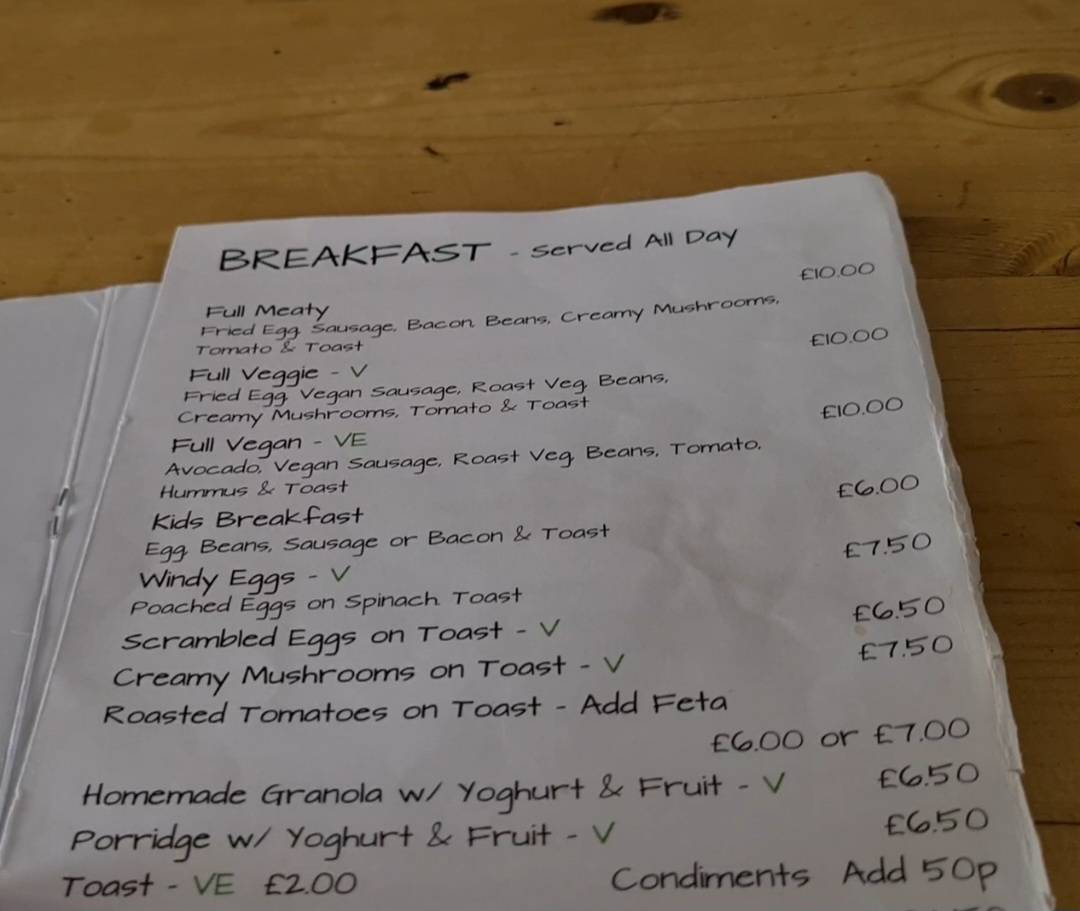 BREAKFAST - Served All Day
Full Meaty £10.00
Fried Egg, Sausage, Bacon, Beans, Creamy Mushrooms,
Tomato & Toast
Full Veggie - V £10.00
Fried Egg, Vegan Sausage, Roast Veg, Beans,
Creamy Mushrooms, Tomato & Toast
Full Vegan - VE £10.00
Avocado, Vegan Sausage, Roast Veg, Beans, Tomato,
Hummus & Toast
Kids Breakfast £6.00
Egg, Beans, Sausage or Bacon & Toast
Windy Eggs - V £7.50
Poached Eggs on Spinach Toast
Scrambled Eggs on Toast - V £6.50
Creamy Mushrooms on Toast - V £7.50
Roasted Tomatoes on Toast - Add Feta
£6.00 or £7.00
Homemade Granola w/ Yoghurt & Fruit - V £6.50
Porridge w/ Yoghurt & Fruit - V £6.50
Toast - VE £2.00 Condiments Add 50p